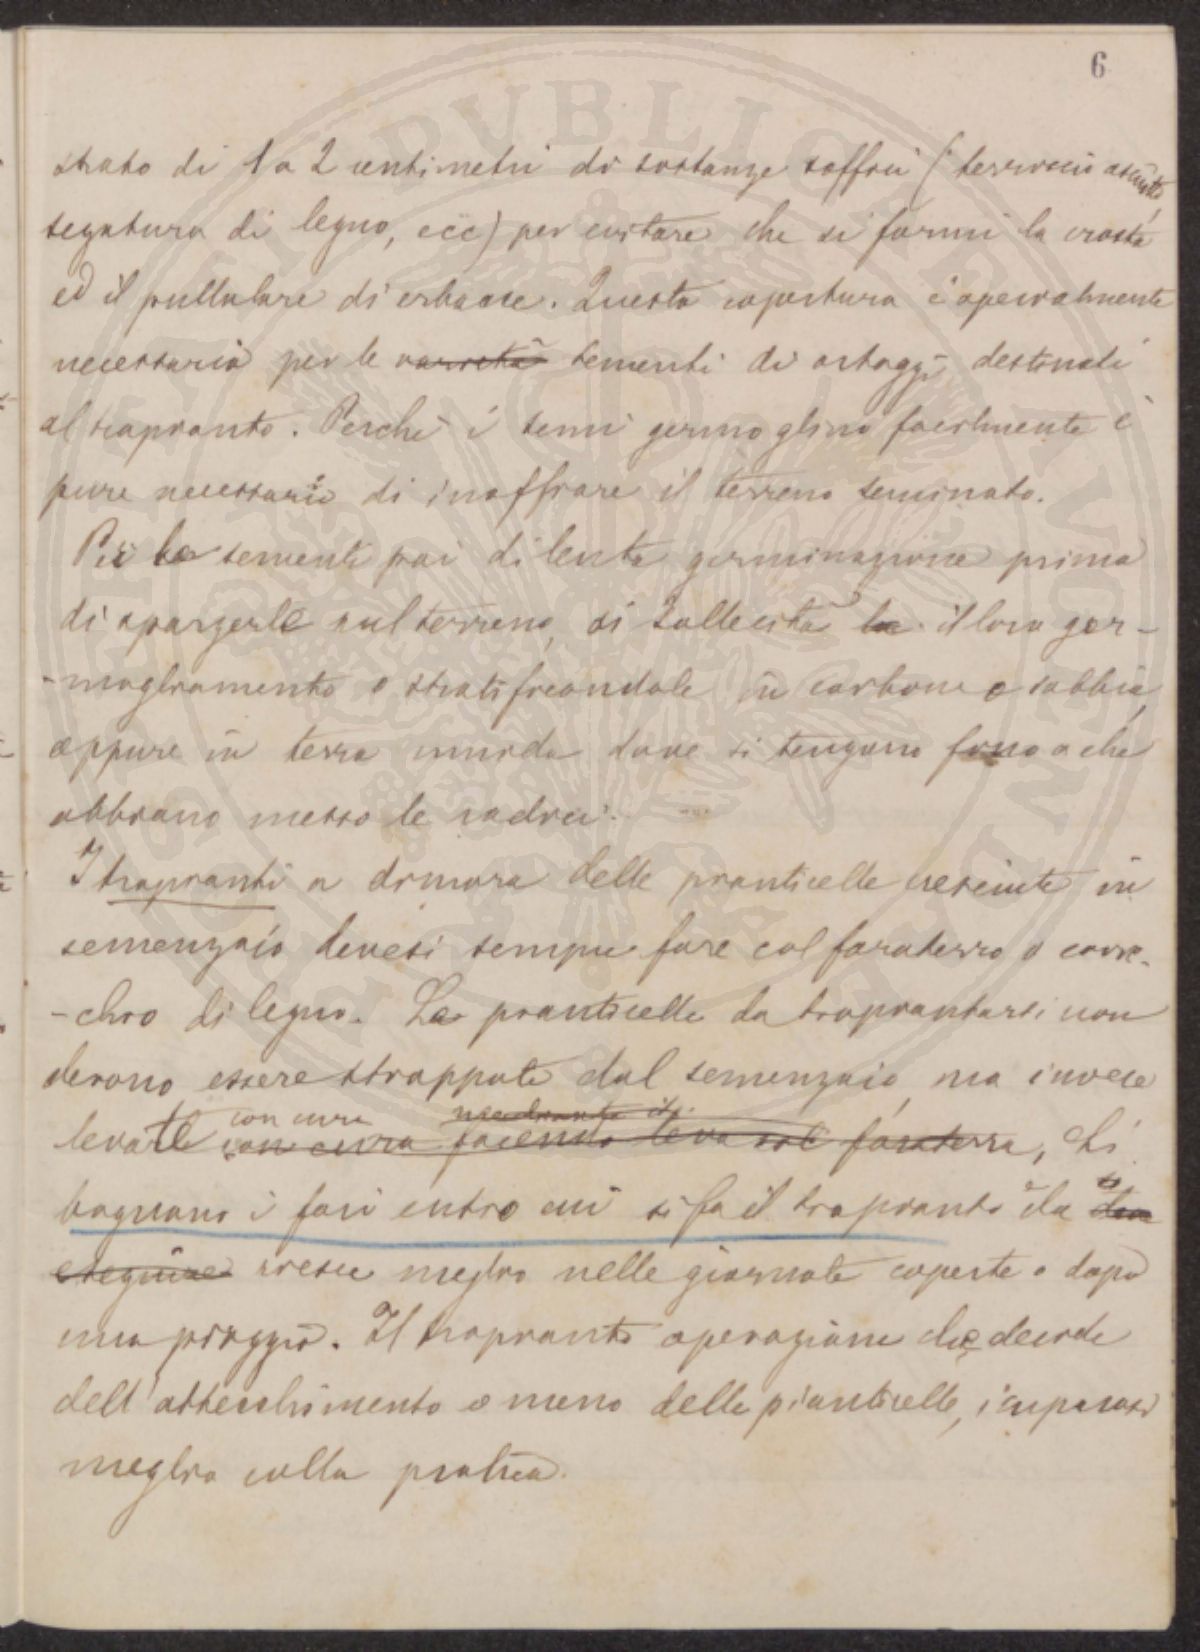 6
strato di 1 a 2 centimetri di sostanze soffici (terriccio asciutto,
segatura di legno, ecc) per evitare che si formi la crosta
ed il pullulare di erbacce. Questa copertura è specialmente
necessaria per le varietà sementi di ortaggi destinati
al trapianto. Perchè i semi germoglino facilmente è
pure necessario di inaffiare il terreno seminato.
Per le sementi poi di lenta germinazione prima
di spargerle sul terreno, si sollecita la il loro ger-
-mogliamento o stratificandole in carbone o sabbia,
oppure in terra umida dove si tengono fino a che
abbiano messo le radici.
I trapianti a dimora delle pianticelle cresciute in
semenzaio devesi sempre fare col foraterra o cavic-
-chio di legno. Le pianticelle da trapiantarsi non
devono essere strappate dal semenzaio, ma invece
con cura mediante il
levarle con cura facendo leva col foraterra, Si
bagnano i fori entro cui si fa il trapianto da
si
eseguire riesce meglio nelle giornate coperte o dopo
una pioggia. Il trapianto operazione che decide
dell'attecchimento o meno delle pianticelle, imparasi
meglio colla pratica.
PVBLICHE